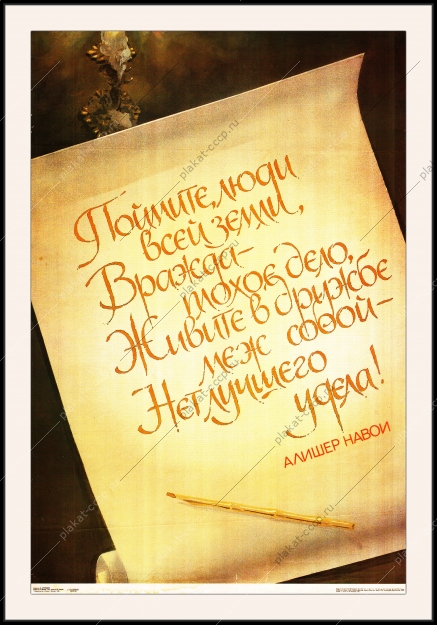 Поймите, люди
всей земли,
Вражда-
плохое дело,
Живите в дружбе
меж собой-
Нет лучшего
удела!
АЛИШЕР НАВОИ
plakat-cccp.ru